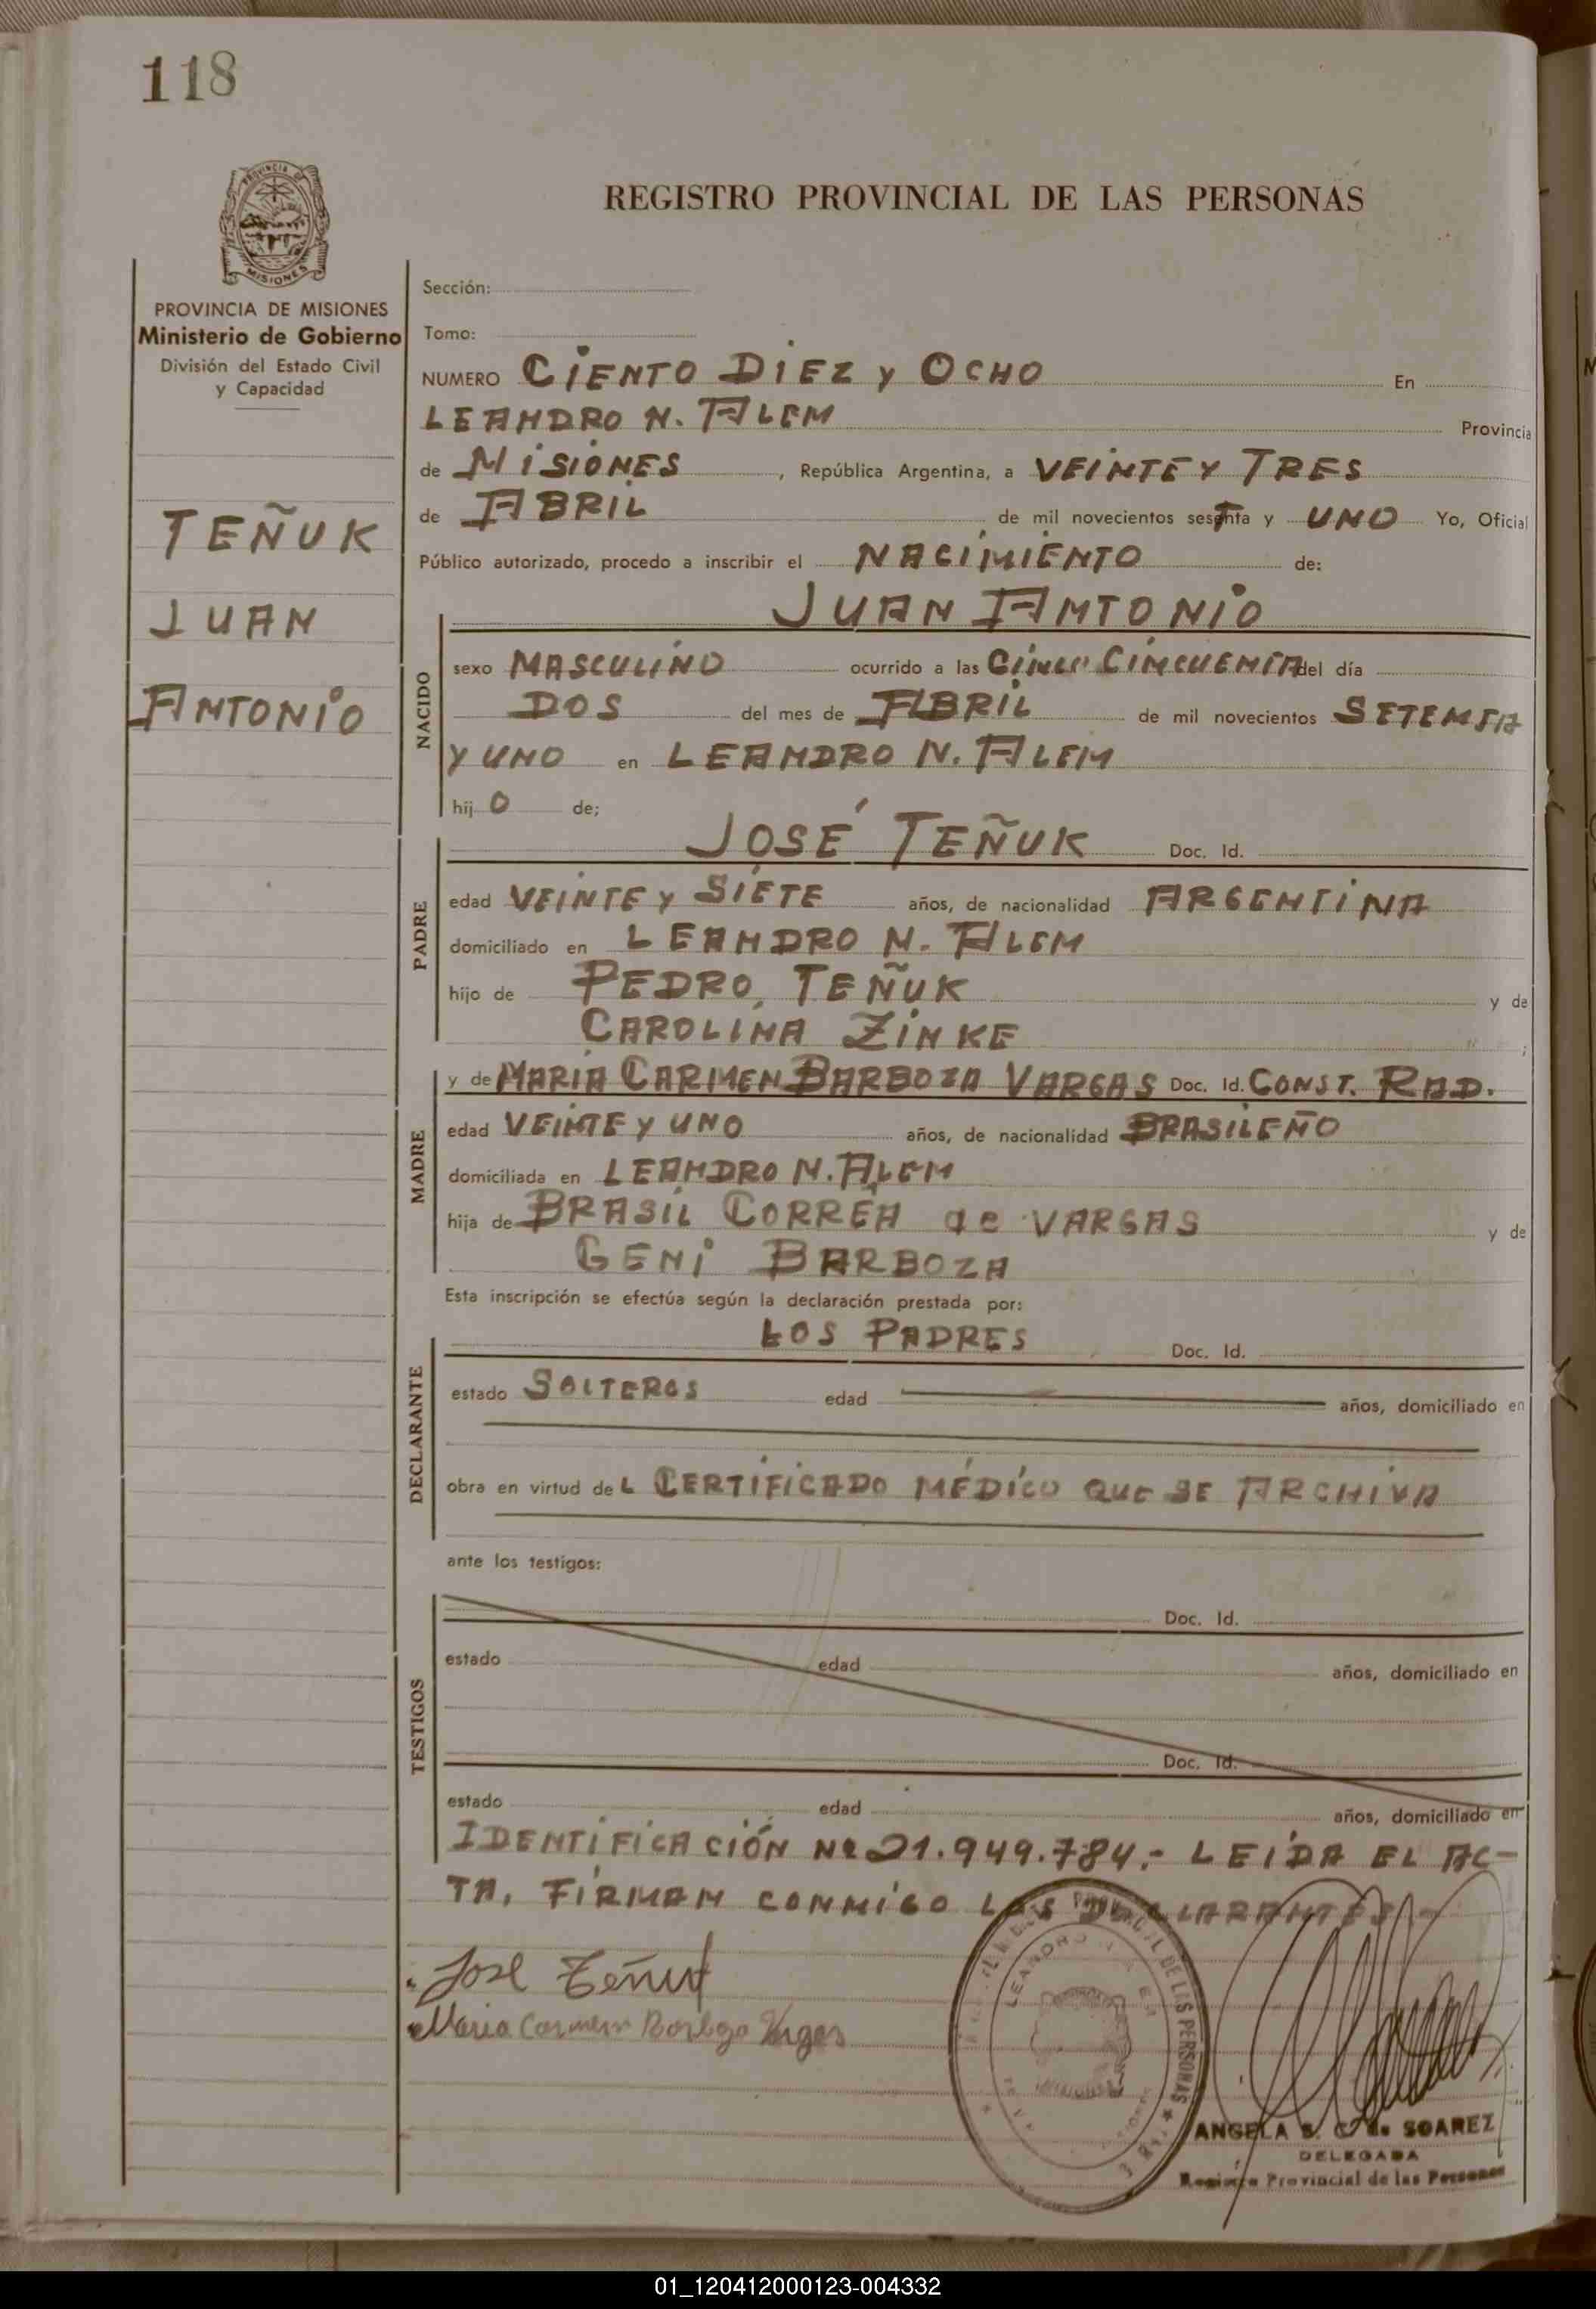 118
PROVINCIA DE
MISIONES
PROVINCIA DE MISIONES
Ministerio de Gobierno
División del Estado Civil
y Capacidad
TEÑUK
JUAN
ANTONIO
REGISTRO PROVINCIAL DE LAS PERSONAS
Sección:
Tomo:
NUMERO CIENTO DIEZ y OCHO En
LEANDRO N. ALEM Provincia
de MISIONES, República Argentina, a VEINTE Y TRES
de ABRIL de mil novecientos setenta y UNO Yo, Oficial
Público autorizado, procedo a inscribir el NACIMIENTO de:
JUAN ANTONIO
NACIDO
sexo MASCULINO ocurrido a las CINCO CINCUENTA del día
DOS del mes de ABRIL de mil novecientos SETENTA
Y UNO en LEANDRO N. ALEM
hij O de;
PADRE
JOSÉ TEÑUK Doc. Id.
edad VEINTE Y SIETE años, de nacionalidad ARGENTINA
domiciliado en LEANDRO N. ALEM
hijo de PEDRO TEÑUK y de
CAROLINA ZINKE
MADRE
y de MARIA CARMEN BARBOZA VARGAS Doc. Id. CONST. RAD.
edad VEINTE Y UNO años, de nacionalidad BRASILEÑO
domiciliada en LEANDRO N. ALEM
hija de BRASIL CORRÊA de VARGAS y de
GENI BARBOZA
Esta inscripción se efectúa según la declaración prestada por:
DECLARANTE
LOS PADRES Doc. Id.
estado SOLTEROS edad años, domiciliado en
obra en virtud de L CERTIFICADO MÉDICO QUE SE ARCHIVA
ante los testigos:
TESTIGOS
Doc. Id.
estado edad años, domiciliado en
Doc. Id.
estado edad años, domiciliado en
IDENTIFICACIÓN Nº 21.949.784.- LEIDA EL AC-
TA, FIRMAN CONMIGO LOS DECLARANTES.-
José Teñuk
Maria Carmen Barboza Vargas
PROVINCIAL DE LAS PERSONAS
LEANDRO N. ALEM
MISIONES
ANGELA S. C. de SOAREZ
DELEGADA
Registro Provincial de las Personas
01_120412000123-004332